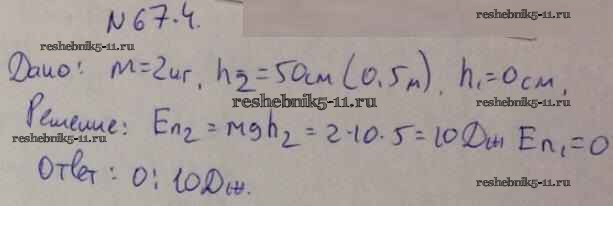 N67.4.
reshebnik5-11.ru
reshebnik5-11.ru
Дано: m=2кг, h2=50см (0,5м), h1=0см,
reshebnik5-11.ru
reshebnik5-11.ru
Решение: Еп2=mgh2=2·10·5=10Дж Еп1=0
reshebnik5-11.ru
reshebnik5-11.ru
Ответ: 0; 10Дж.
reshebnik5-11.ru
reshebnik5-11.ru